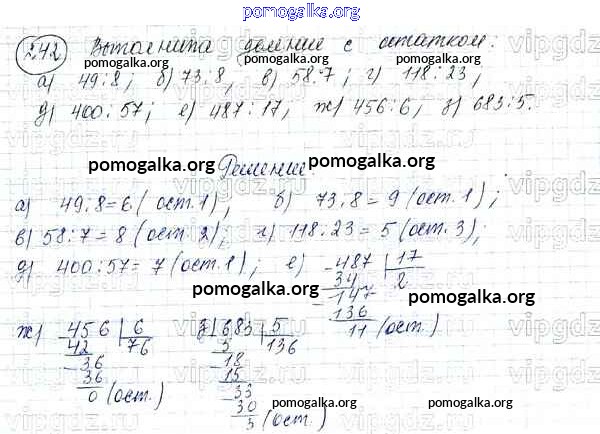 pomogalka.org
242 Выполните деление с остатком:
а) 49:8; б) 73:8, в) 58:7; г) 118:23,
д) 400:57; е) 487:17, ж) 456:6, з) 683:5.
pomogalka.org Решение: pomogalka.org
а) 49:8=6 (ост.1), б) 73:8=9 (ост.1);
в) 58:7=8 (ост.2); г) 118:23=5 (ост.3);
д) 400:57=7 (ост.1); е) 487 17
34 2
147
136
11 (ост.)
ж) 456 6
42 76
36
36
0 (ост.)
з) 683 5
5 136
18
15
33
30
3 (ост.)
pomogalka.org
pomogalka.org
pomogalka.org
pomogalka.org
pomogalka.org
vipgdz.ru
vipgdz.ru
vipgdz.ru